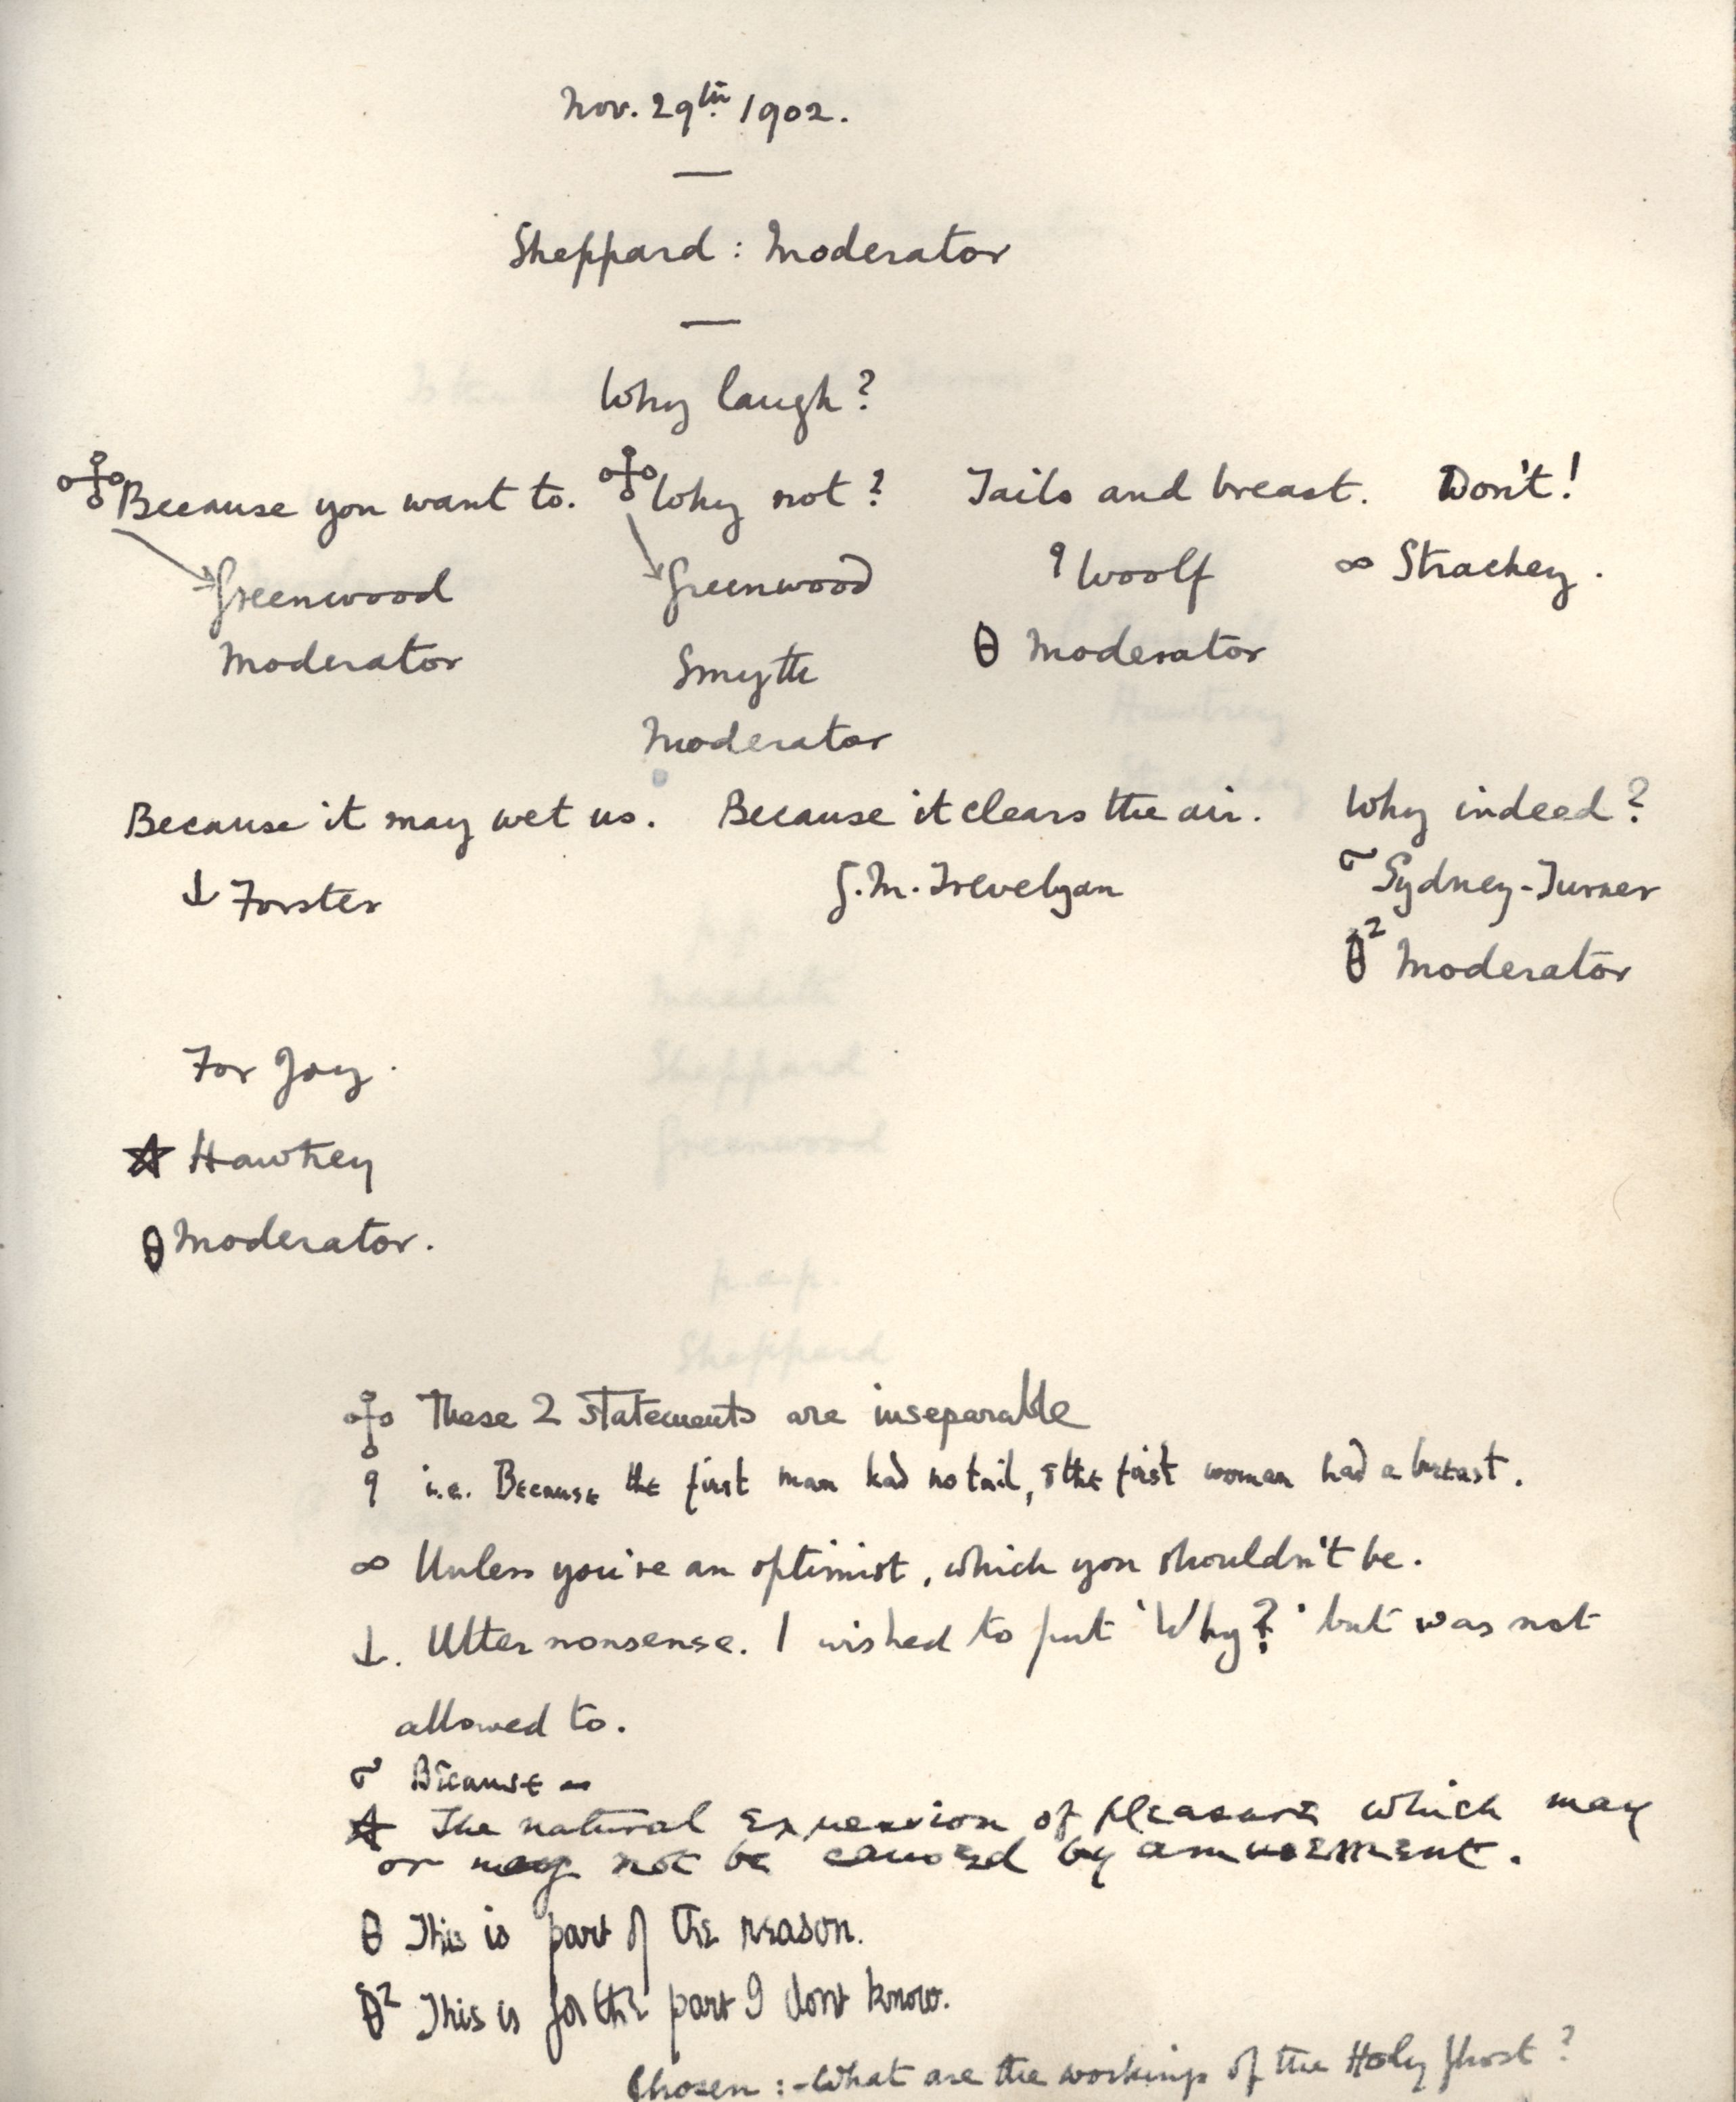 Nov. 29th 1902.
Sheppard : Moderator
Why laugh?
Because you want to. Why not? Tails and breast. Don't!
Greenwood Greenwood ♀ Woolf ∞ Strachey.
Moderator Smyth θ Moderator
Moderator
Because it may wet us. Because it clears the air. Why indeed?
↓ Forster G.M. Trevelyan σ Sydney-Turner
θ² Moderator
For Joy.
☆ Hawtrey
θ Moderator.
These 2 statements are inseparable
♀ i.e. Because the first man had no tail, & the first woman had a breast.
∞ Unless you're an optimist, which you shouldn't be.
↓. Utter nonsense. I wished to put 'Why?' but was not
allowed to.
σ Because —
☆ The natural expression of pleasure which may
or may not be caused by amusement.
θ This is part of the reason.
θ² This is for the part I dont know.
Chosen :- What are the workings of the Holy Ghost?